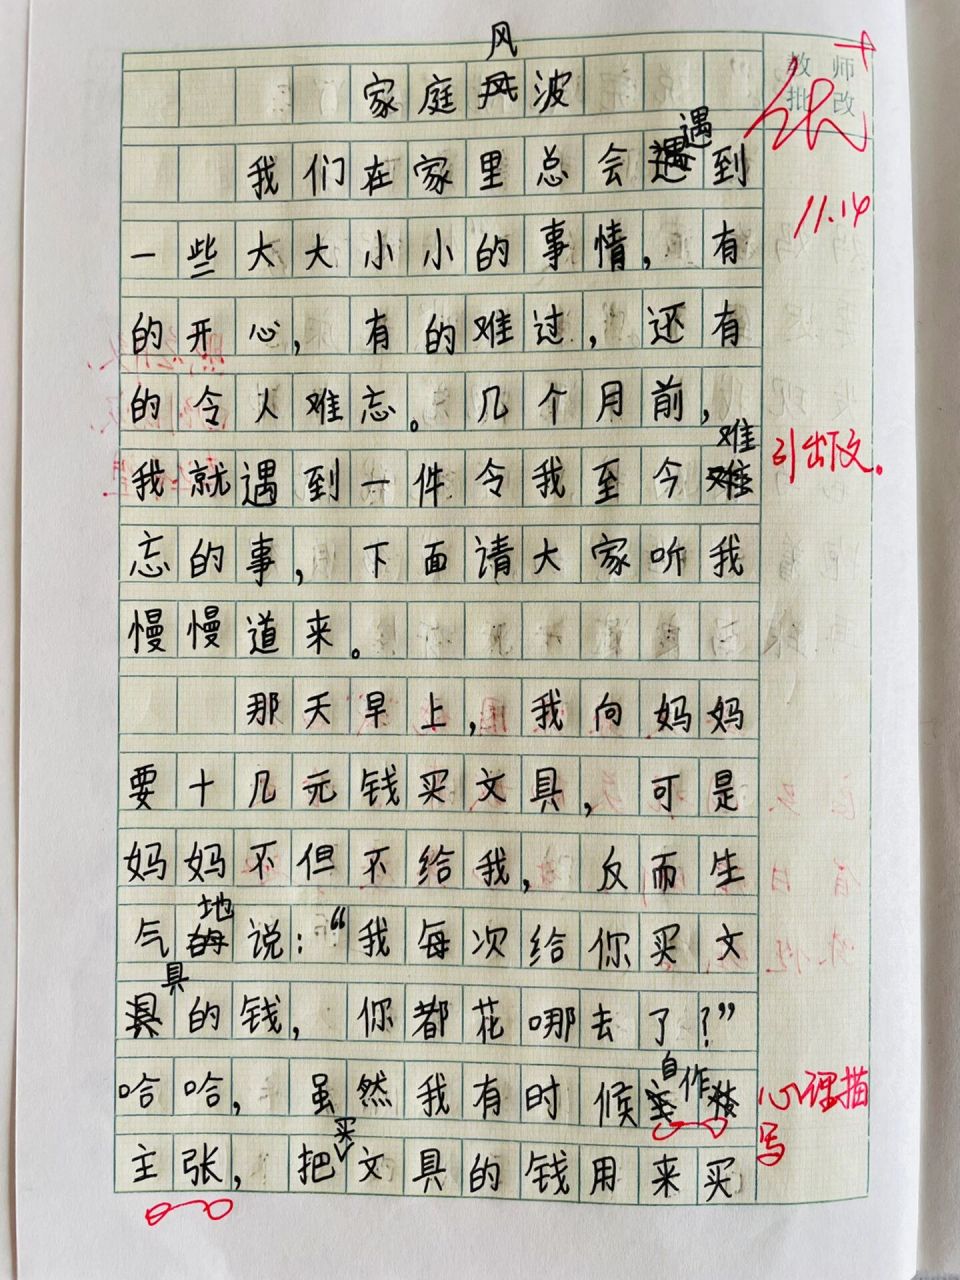 家庭风波
教师
批改
11.14
我们在家里总会遇到
一些大大小小的事情，有
的开心，有的难过，还有
的令人难忘。几个月前，
我就遇到一件令我至今难
引出下文。
忘的事，下面请大家听我
慢慢道来。
那天早上，我向妈妈
要十几元钱买文具，可是
妈妈不但不给我，反而生
气地说：“我每次给你买文
具的钱，你都花哪去了？”
哈哈，虽然我有时候自作
心理描
写
主张，把买文具的钱用来买